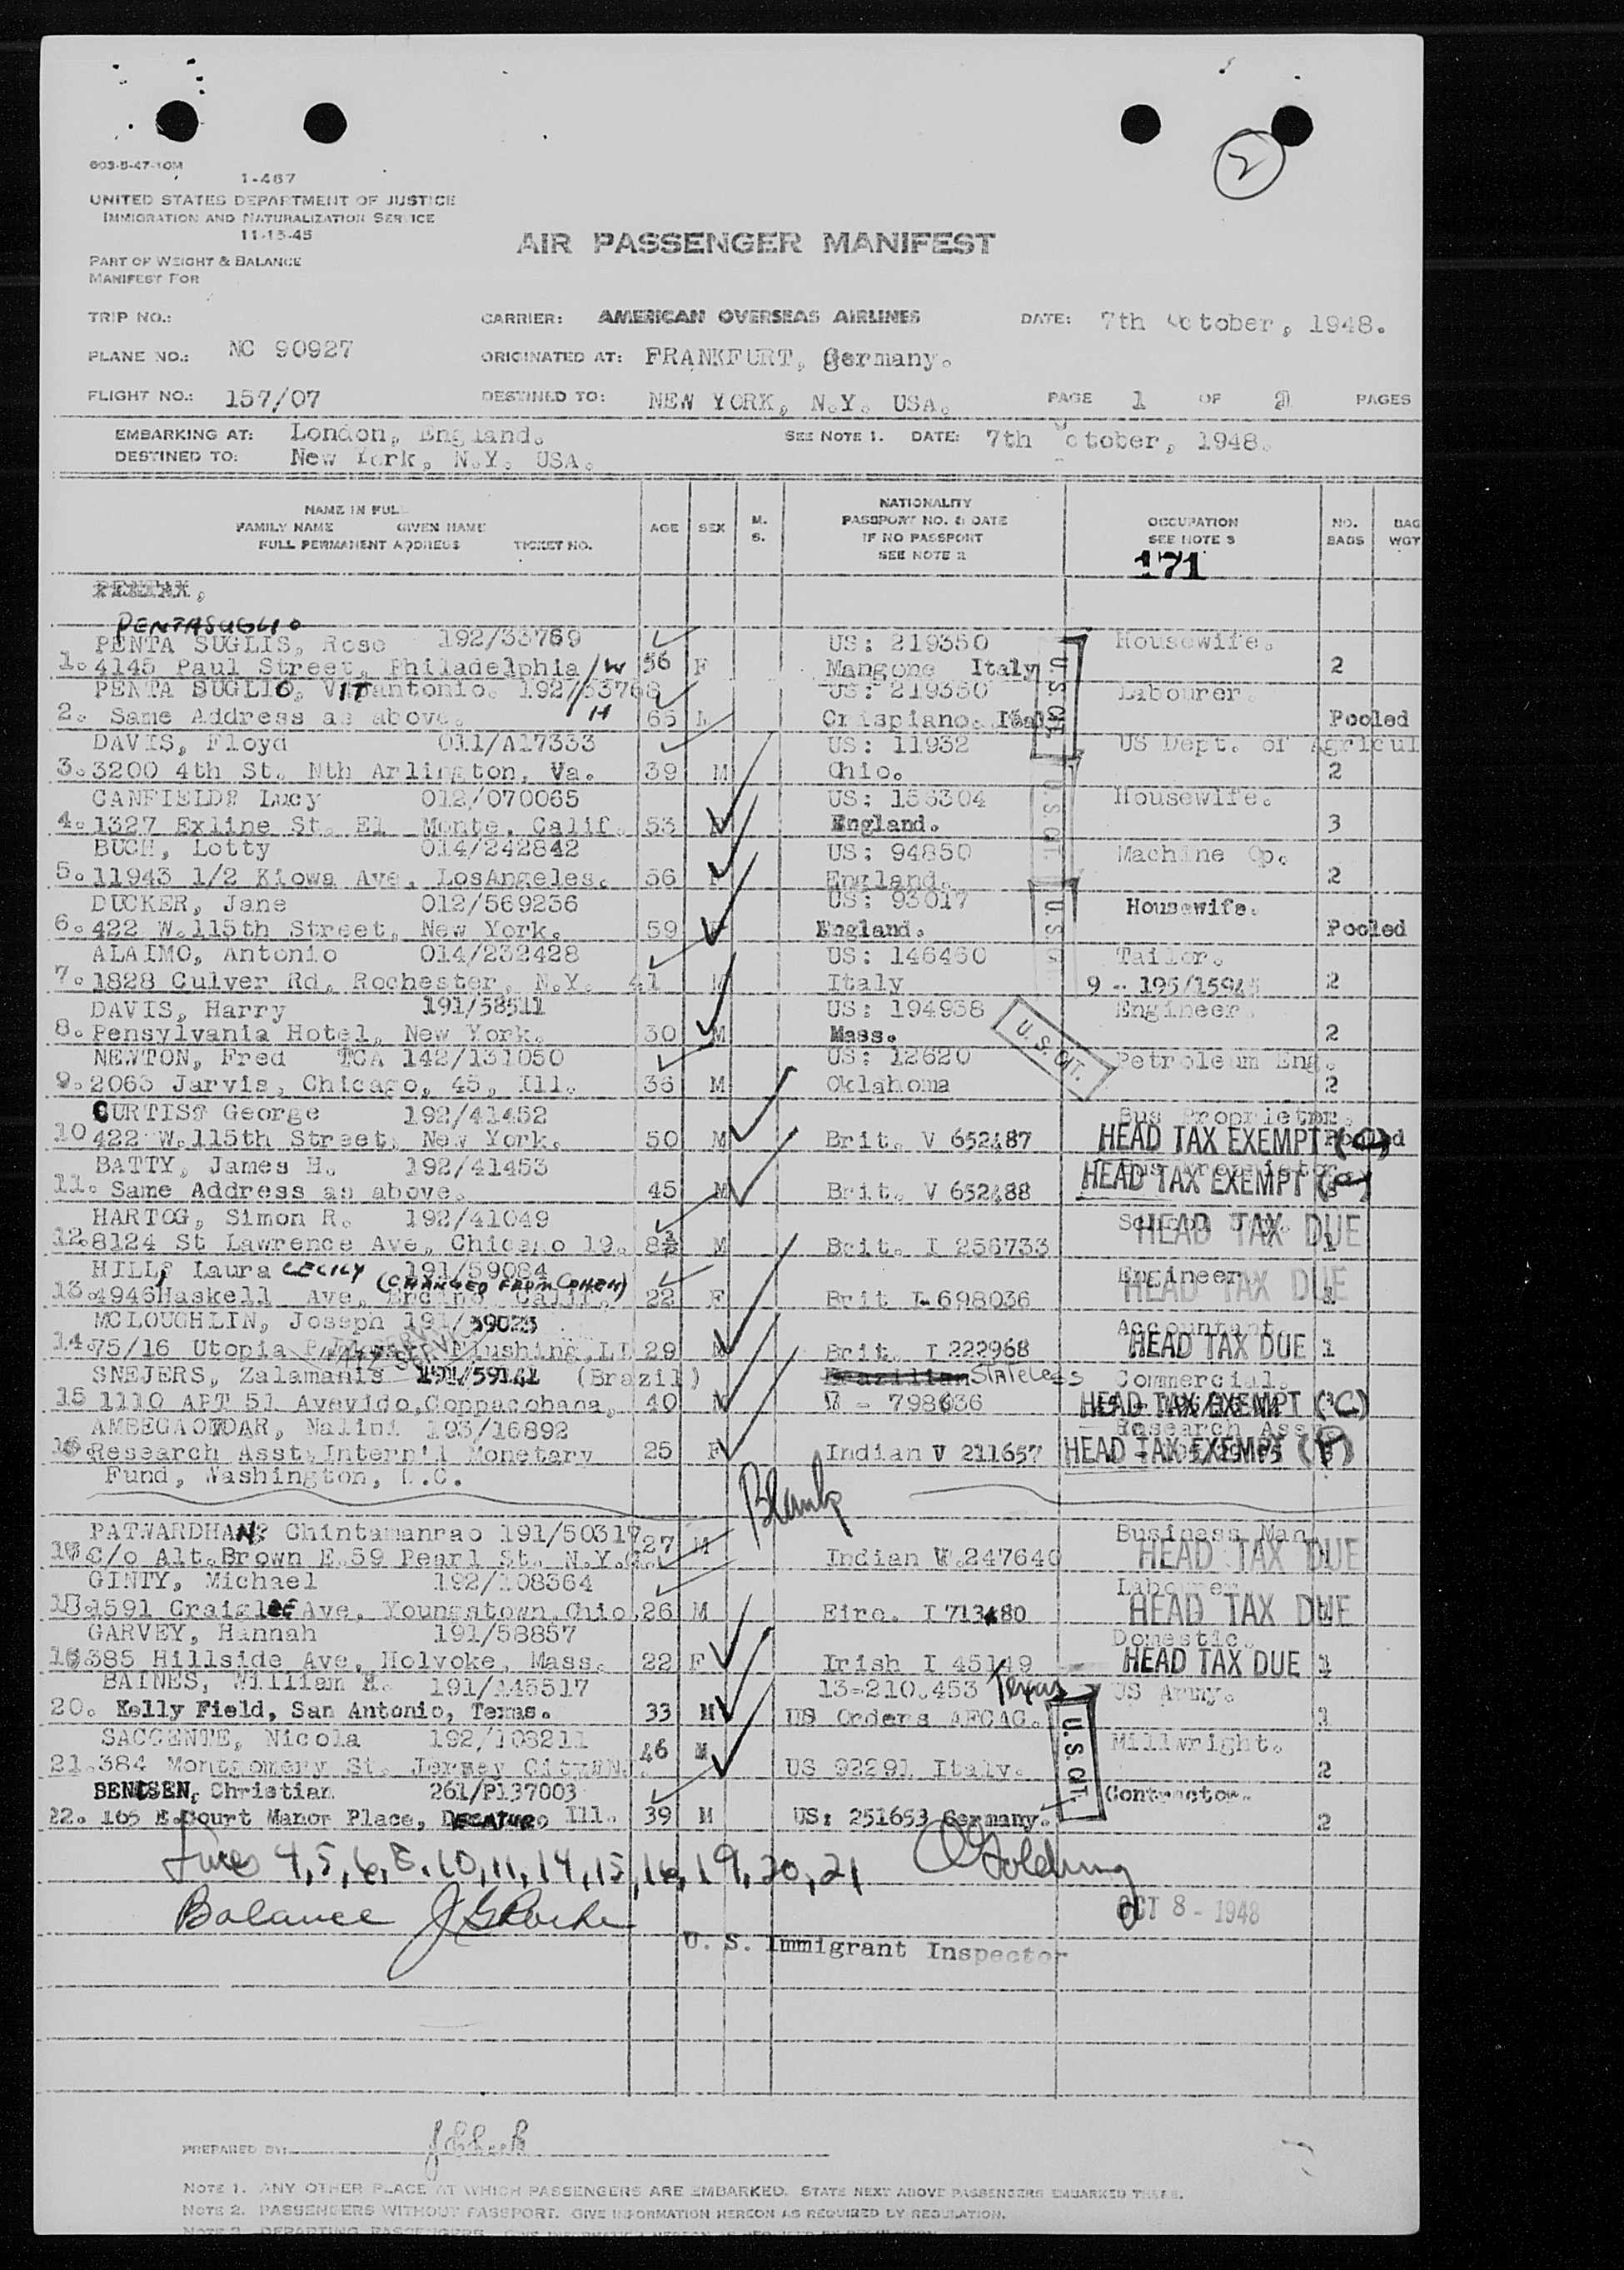 2
603-5-47-10M
1-467
UNITED STATES DEPARTMENT OF JUSTICE
IMMIGRATION AND NATURALIZATION SERVICE
11-15-45
AIR PASSENGER MANIFEST
PART OF WEIGHT & BALANCE
MANIFEST FOR
TRIP NO.: CARRIER: AMERICAN OVERSEAS AIRLINES DATE: 7th October, 1948.
PLANE NO.: NC 90927 ORIGINATED AT: FRANKFURT, Germany.
FLIGHT NO.: 157/07 DESTINED TO: NEW YORK, N.Y. USA. PAGE 1 OF 2 PAGES
EMBARKING AT: London, England. SEE NOTE 1. DATE: 7th October, 1948.
DESTINED TO: New York, N.Y. USA.
NAME IN FULL
FAMILY NAME GIVEN NAME
FULL PERMANENT ADDRESS TICKET NO.
AGE SEX M. S.
NATIONALITY
PASSPORT NO. & DATE
IF NO PASSPORT
SEE NOTE 2
OCCUPATION
SEE NOTE 3
NO. BAGS
BAG WGT
171
PENTASUGLIO
PENTA SUGLIS, Rose 192/33769 US: 219350 Housewife.
1. 4145 Paul Street, Philadelphia /W 56 F Mangone Italy 2
PENTA SUGLIO, VITantonio. 192/33768 US: 219350 Labourer.
2. Same Address as above. H 65 Crispiano. Italy Pooled
DAVIS, Floyd 011/A17333 US: 11932 US Dept. of Agricul
3. 3200 4th St. Nth Arlington, Va. 39 M Ohio. 2
CANFIELD, Lucy 012/070065 US: 153304 Housewife.
4. 1327 Exline St. El Monte, Calif. 53 England. 3
BUCH, Lotty 014/242842 US: 94850 Machine Op.
5. 11943 1/2 Kiowa Ave, LosAngeles. 56 F England. 2
DUCKER, Jane 012/569236 US: 93017 Housewife.
6. 422 W.115th Street, New York. 59 England. Pooled
ALAIMO, Antonio 014/232428 US: 146460 Tailor.
7. 1828 Culver Rd, Rochester, N.Y. 41 M Italy 9 - 195/15945 2
DAVIS, Harry 191/58511 US: 194938 Engineer.
8. Pensylvania Hotel, New York. 30 M Mass. 2
NEWTON, Fred TCA 142/131050 US: 12620 Petroleum Eng.
9. 2065 Jarvis, Chicago, 45, Ill. 36 M Oklahoma 2
U.S. CIT.
CURTIS, George 192/41452 Bus Proprietor.
10 422 W.115th Street, New York. 50 M Brit. V 652487 HEAD TAX EXEMPT Pooled
BATTY, James H. 192/41453
11. Same Address as above. 45 M Brit. V 652488 HEAD TAX EXEMPT
HARTOG, Simon R. 192/41049
12. 8124 St Lawrence Ave, Chicago 19. 8½ M Brit. I 256733 HEAD TAX DUE 1
HILL, Laura CECILY 191/59084 (CHANGED FROM COHEN) Engineer
13. 4946 Haskell Ave, Encino Calif. 22 F Brit I-698036 HEAD TAX DUE
MCLOUGHLIN, Joseph 191/59023 Accountant
14. 75/16 Utopia Flushing, LI 29 M Brit. I 222968 HEAD TAX DUE 1
SNEJERS, Zalamanis 191/59141 (Brazil) Brazilian Stateless Commercial.
15 1110 APT 51 Avevido, Coppacobana, 40 M V - 798636 HEAD TAX EXEMPT (3C)
AMBEGAOKDAR, Nalini 193/16892 Research Asst
16. Research Asst. Intern'l Monetary 25 F Indian V 211657 HEAD TAX EXEMPT
Fund, Washington, D.C.
Blank
PATWARDHAN, Chintamanrao 191/50317 Business Man
17. C/o Alt.Brown E.59 Pearl St. N.Y. 27 M Indian V.247640 HEAD TAX DUE
GINTY, Michael 192/108364 Labourer
18. 1591 Craiglee Ave, Youngstown, Ohio. 26 M Eire. I 713480 HEAD TAX DUE
GARVEY, Hannah 191/58857 Domestic.
19. 385 Hillside Ave, Holvoke, Mass. 22 F Irish I 45149 HEAD TAX DUE 1
BAINES, William H. 191/145517 13-210.453 Texas US Army.
20. Kelly Field, San Antonio, Texas. 33 M US Orders AFCAC. 1
SACCENTE, Nicola 192/108211 Millwright.
21. 384 Montgomery St. Jersey City 46 M US 92291 Italy. 2
U.S. CIT.
BENDSEN, Christian 261/P137003 Contractor.
22. 165 E.Court Manor Place, DECATUR, Ill. 39 M US: 251653 Germany. 2
Lines 4, 5, 6, 8, 10, 11, 14, 15, 16, 19, 20, 21 Golding
Balance
OCT 8 - 1948
U. S. Immigrant Inspector
PREPARED BY:
NOTE 1. ANY OTHER PLACE AT WHICH PASSENGERS ARE EMBARKED. STATE NEXT ABOVE PASSENGERS EMBARKED THERE.
NOTE 2. PASSENGERS WITHOUT PASSPORT. GIVE INFORMATION HEREON AS REQUIRED BY REGULATION.